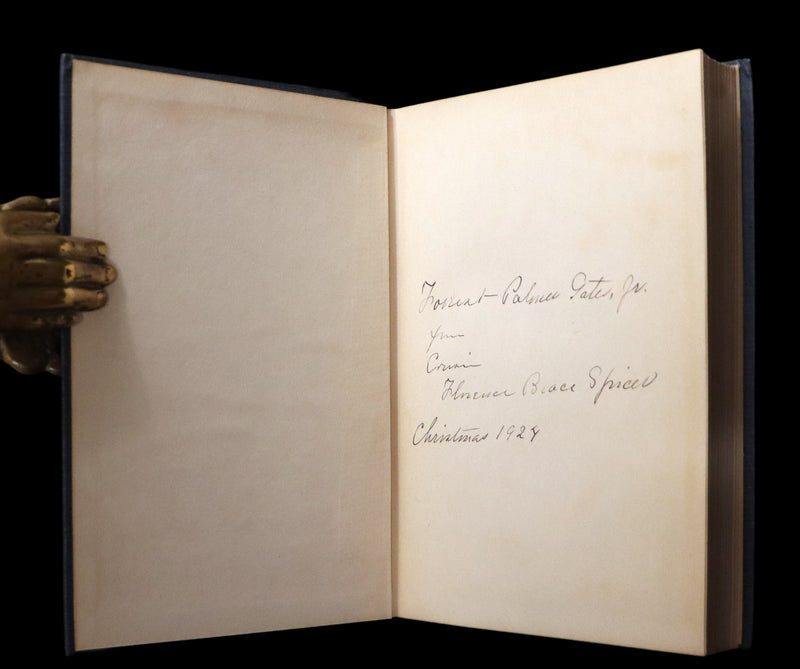 Forrest Palmer Gates, Jr.
from
Cousin
Florence Brace Spicer
Christmas 1928